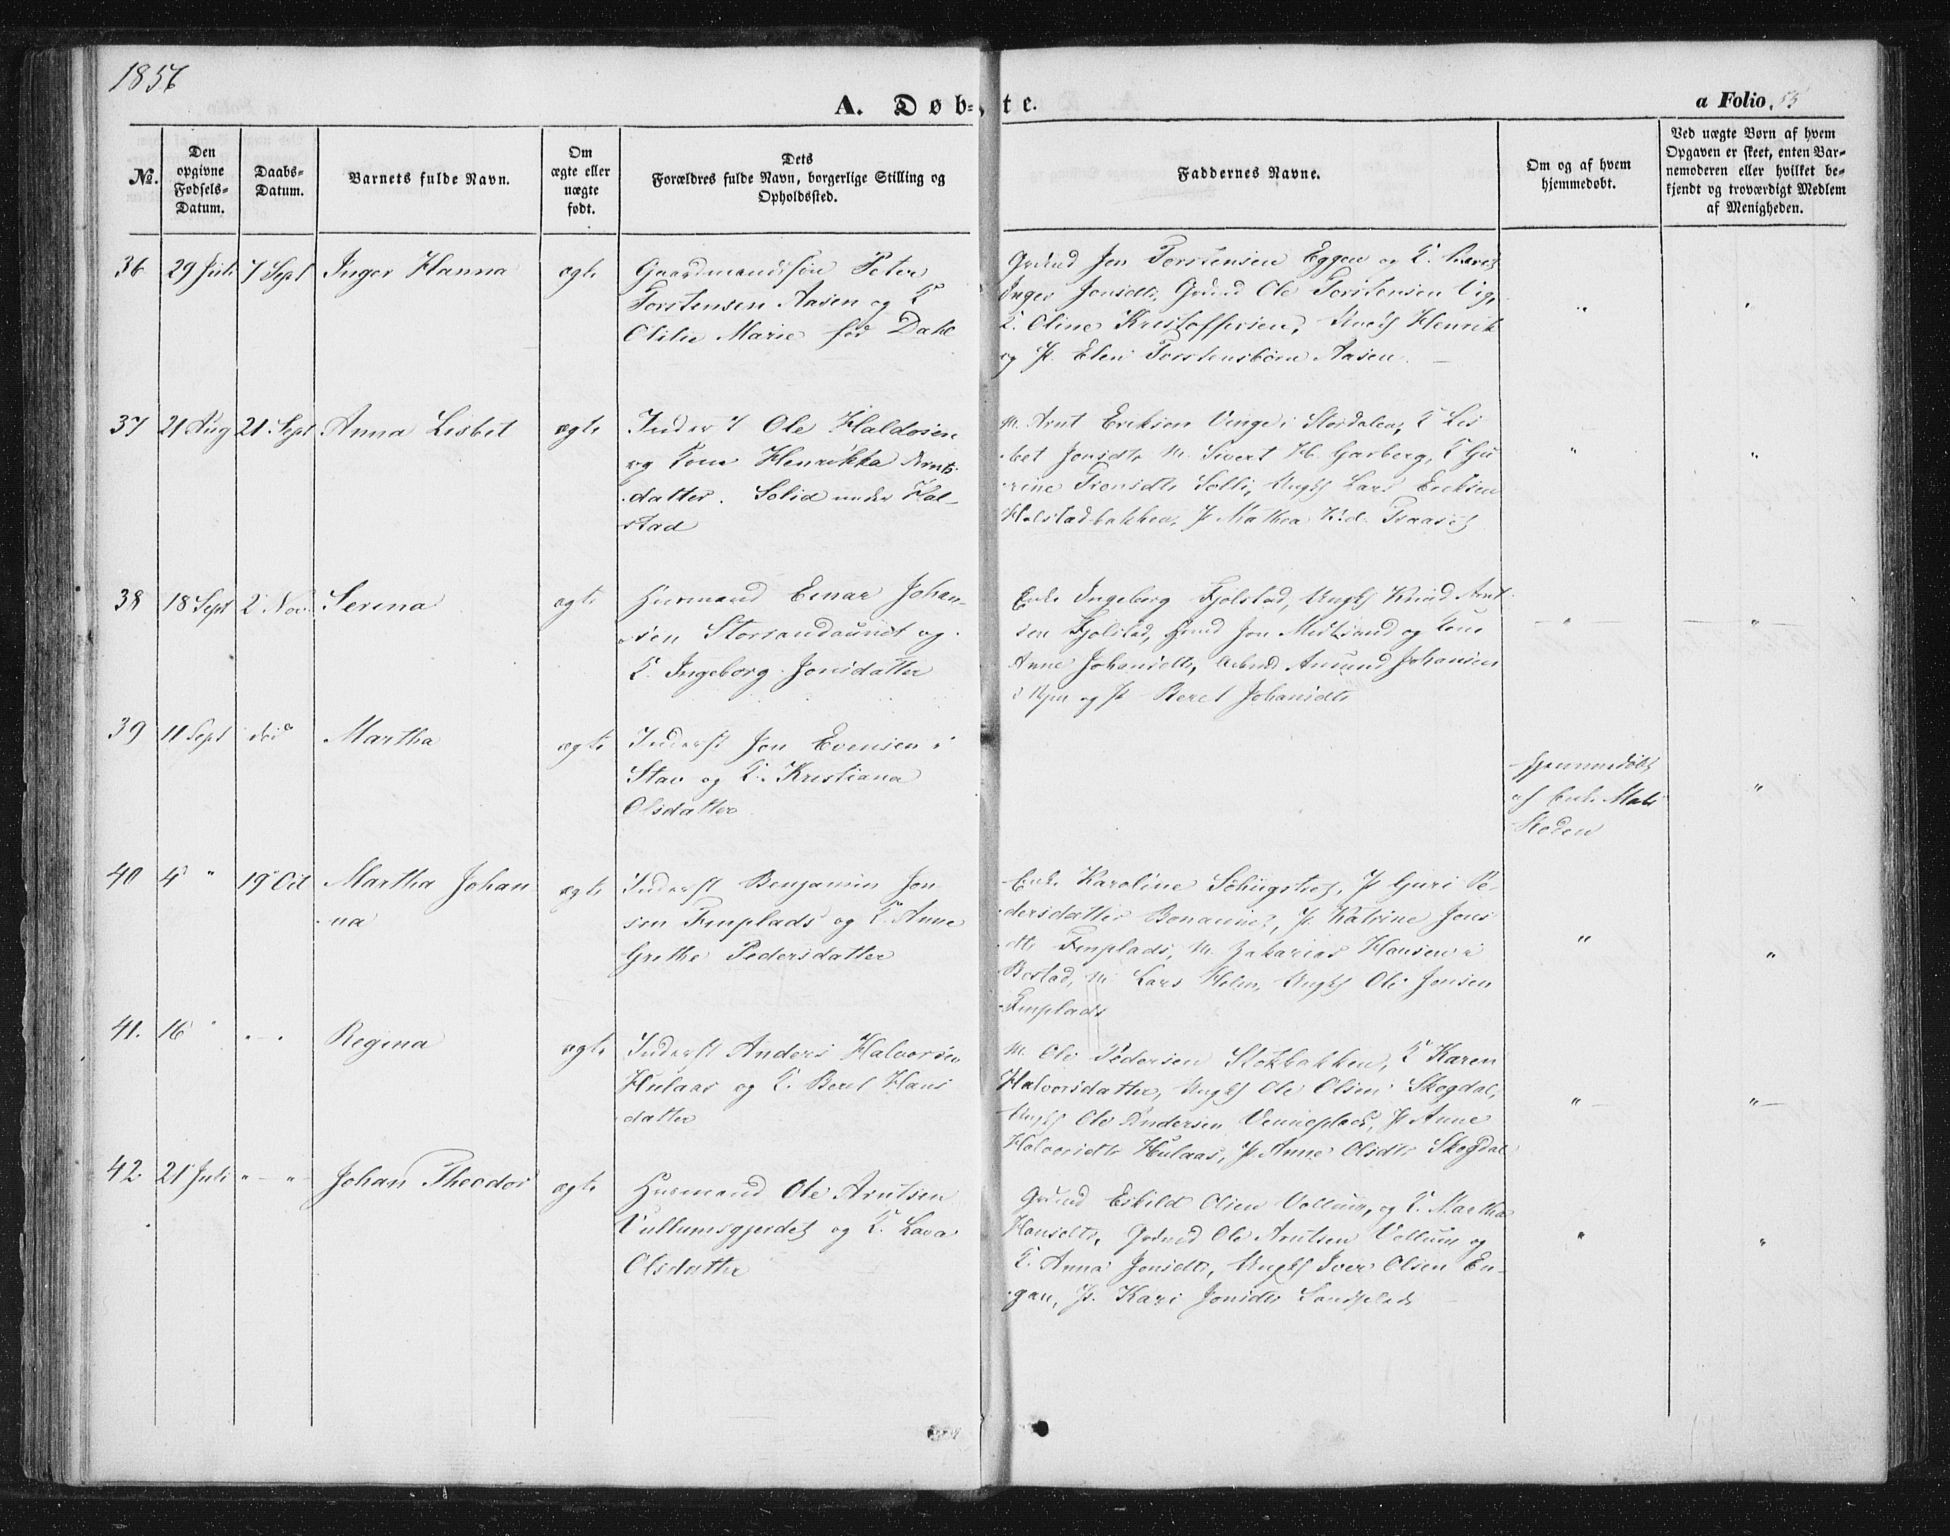 1856
A. Døb-
te.
a Folio 55
No.
Den opgivne Fødsels-Datum.
Daabs-Datum.
Barnets fulde Navn.
Om ægte eller uægte født.
Dets Forældres fulde Navn, borgerlige Stilling og Opholdssted.
Faddernes Navne.
Om og af hvem hjemmedøbt.
Ved uægte Børn af hvem Opgaven er skeet, enten Barnemoderen eller hvilket bekjendt og troværdigt Medlem af Menigheden.
36 29 Juli 7 Sept Inger Hanna ægte
Gaardmandssøn Peter
Torstensen Aasen og K
Olilie Marie fød Dahl
Grdmd Jon Torstensen Eggen og K.
Inger Jonsdtr, Grdmd Ole Torstensen Vig,
K. Oline Kristoffersen, Henrik
og P. Elen Torstensbørn Aasen
" "
37 21 Aug 21 Sept Anna Lisbet ægte
Inders T Ole Haldosen
og Kone Henrikka Arnts
datter. Solid under Hal-
stad
M. Arnt Eriksen Vinge i Stordalen, K Lis
bet Jonsdtr M. Sivert H. Garberg, K Gu
rine Tronsdtr Solli, Ungk Lars Eriksen
Halstadbakken, P Mathea
" "
38 18 Sept 2 Nov Serina ægte
Husmand Einar Johan-
sen Storsandaunet og
K. Ingeborg Jonsdatter
Enke Ingeborg Fjolstad, Ungk Knud Arnt
sen Fjolstad, Hmd Jon Midtsand og Kone
Anne Johansdtr, Amund Johansen
og P Beret Johansdtr
" "
39 11 Sept død Martha ægte
Inderst Jon Evensen i
Stav og K. Kristiana
Olsdatter
Hjemmedøbt
af Enke Mali
Stoden
"
40 4 " 19 Oct Martha Johan
na ægte
Inderst Benjamin Jon
sen Fmplads og K. Anne
Grethe Pedersdatter
Enke Karoline P Guri Pe-
dersdatter P. Katrine Jons
dtr Fmplads, M. Zakarias Hansen i
Bostad, M Lars Holm, Ungk Ole Jonsen
Fmplads
" "
41. 16 " " Regina ægte
Inderst Anders Halvorsen
Hulaas og K. Beret Hans
datter
M. Ole Pedersen Stokbakken, K Karen
Halvorsdatter, Ungk Ole Olsen Skogdal,
Ungk Ole Andersen Venneplads, P Anne
Halvorsdtr Hulaas, P Anne Olsdtr Skogdal
" "
42. 21 Juli " " Johan Theodor ægte
Husmand Ole Arntsen
Vullumsgjerdet og K. Lava
Olsdatter
Grdmd Eskild Olsen Vollum, og K. Martha
Hansdtr, Grdmd Ole Arntsen Vollum og
K. Anna Jonsdtr, Ungk Iver Olsen En-
gan, P. Kari Jonsdtr Sandplads
" "